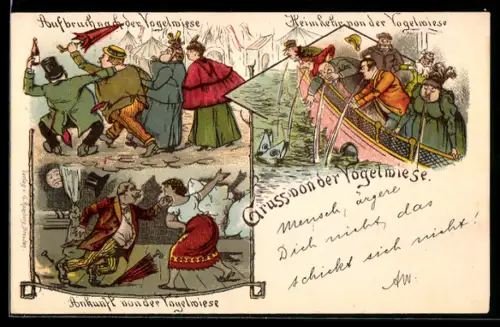 Aufbruch nach der Vogelwiese
Heimkehr von der Vogelwiese
Gruss von der Vogelwiese.
Mensch, ärgere
Dich nicht, das
schickt sich nicht!
AW.
Ankunft von der Vogelwiese